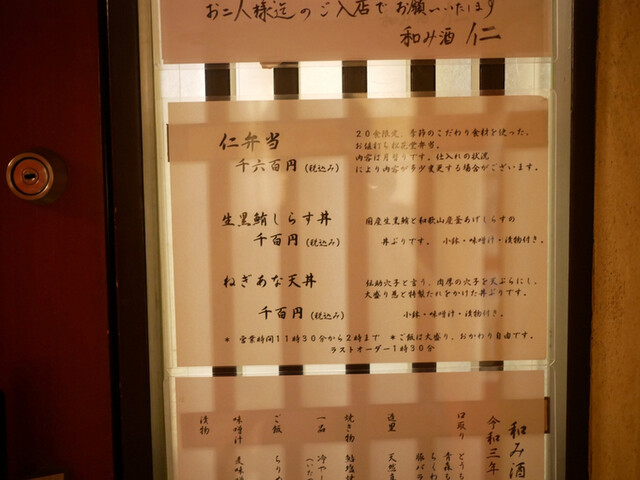 お二人様迄のご入店でお願いいたします
和み酒 仁
仁弁当
千六百円（税込み）
20食限定、季節のこだわり食材を使った、
お値打ち松花堂弁当。
内容は月替りです。仕入れの状況
により内容が多少変更する場合がございます。
生黒鮪しらす丼
千百円（税込み）
国産生黒鮪と和歌山産釜あげしらすの
丼ぶりです。 小鉢・味噌汁・漬物付き。
ねぎあな天丼
千百円（税込み）
伝助穴子と言う、肉厚の穴子を天ぷらにし、
大盛り葱と特製たれをかけた丼ぶりです。
小鉢・味噌汁・漬物付き。
＊ 営業時間11時30分から2時まで ＊ご飯は大盛り、おかわり自由です。
ラストオーダー1時30分
和み酒
令和三年
口取り とうも
青森も
ちくわ
豚バラ
造里 天然真
焼き物 鮎塩焼
一品 冷やし
ご飯 ちりめ
味噌汁
漬物